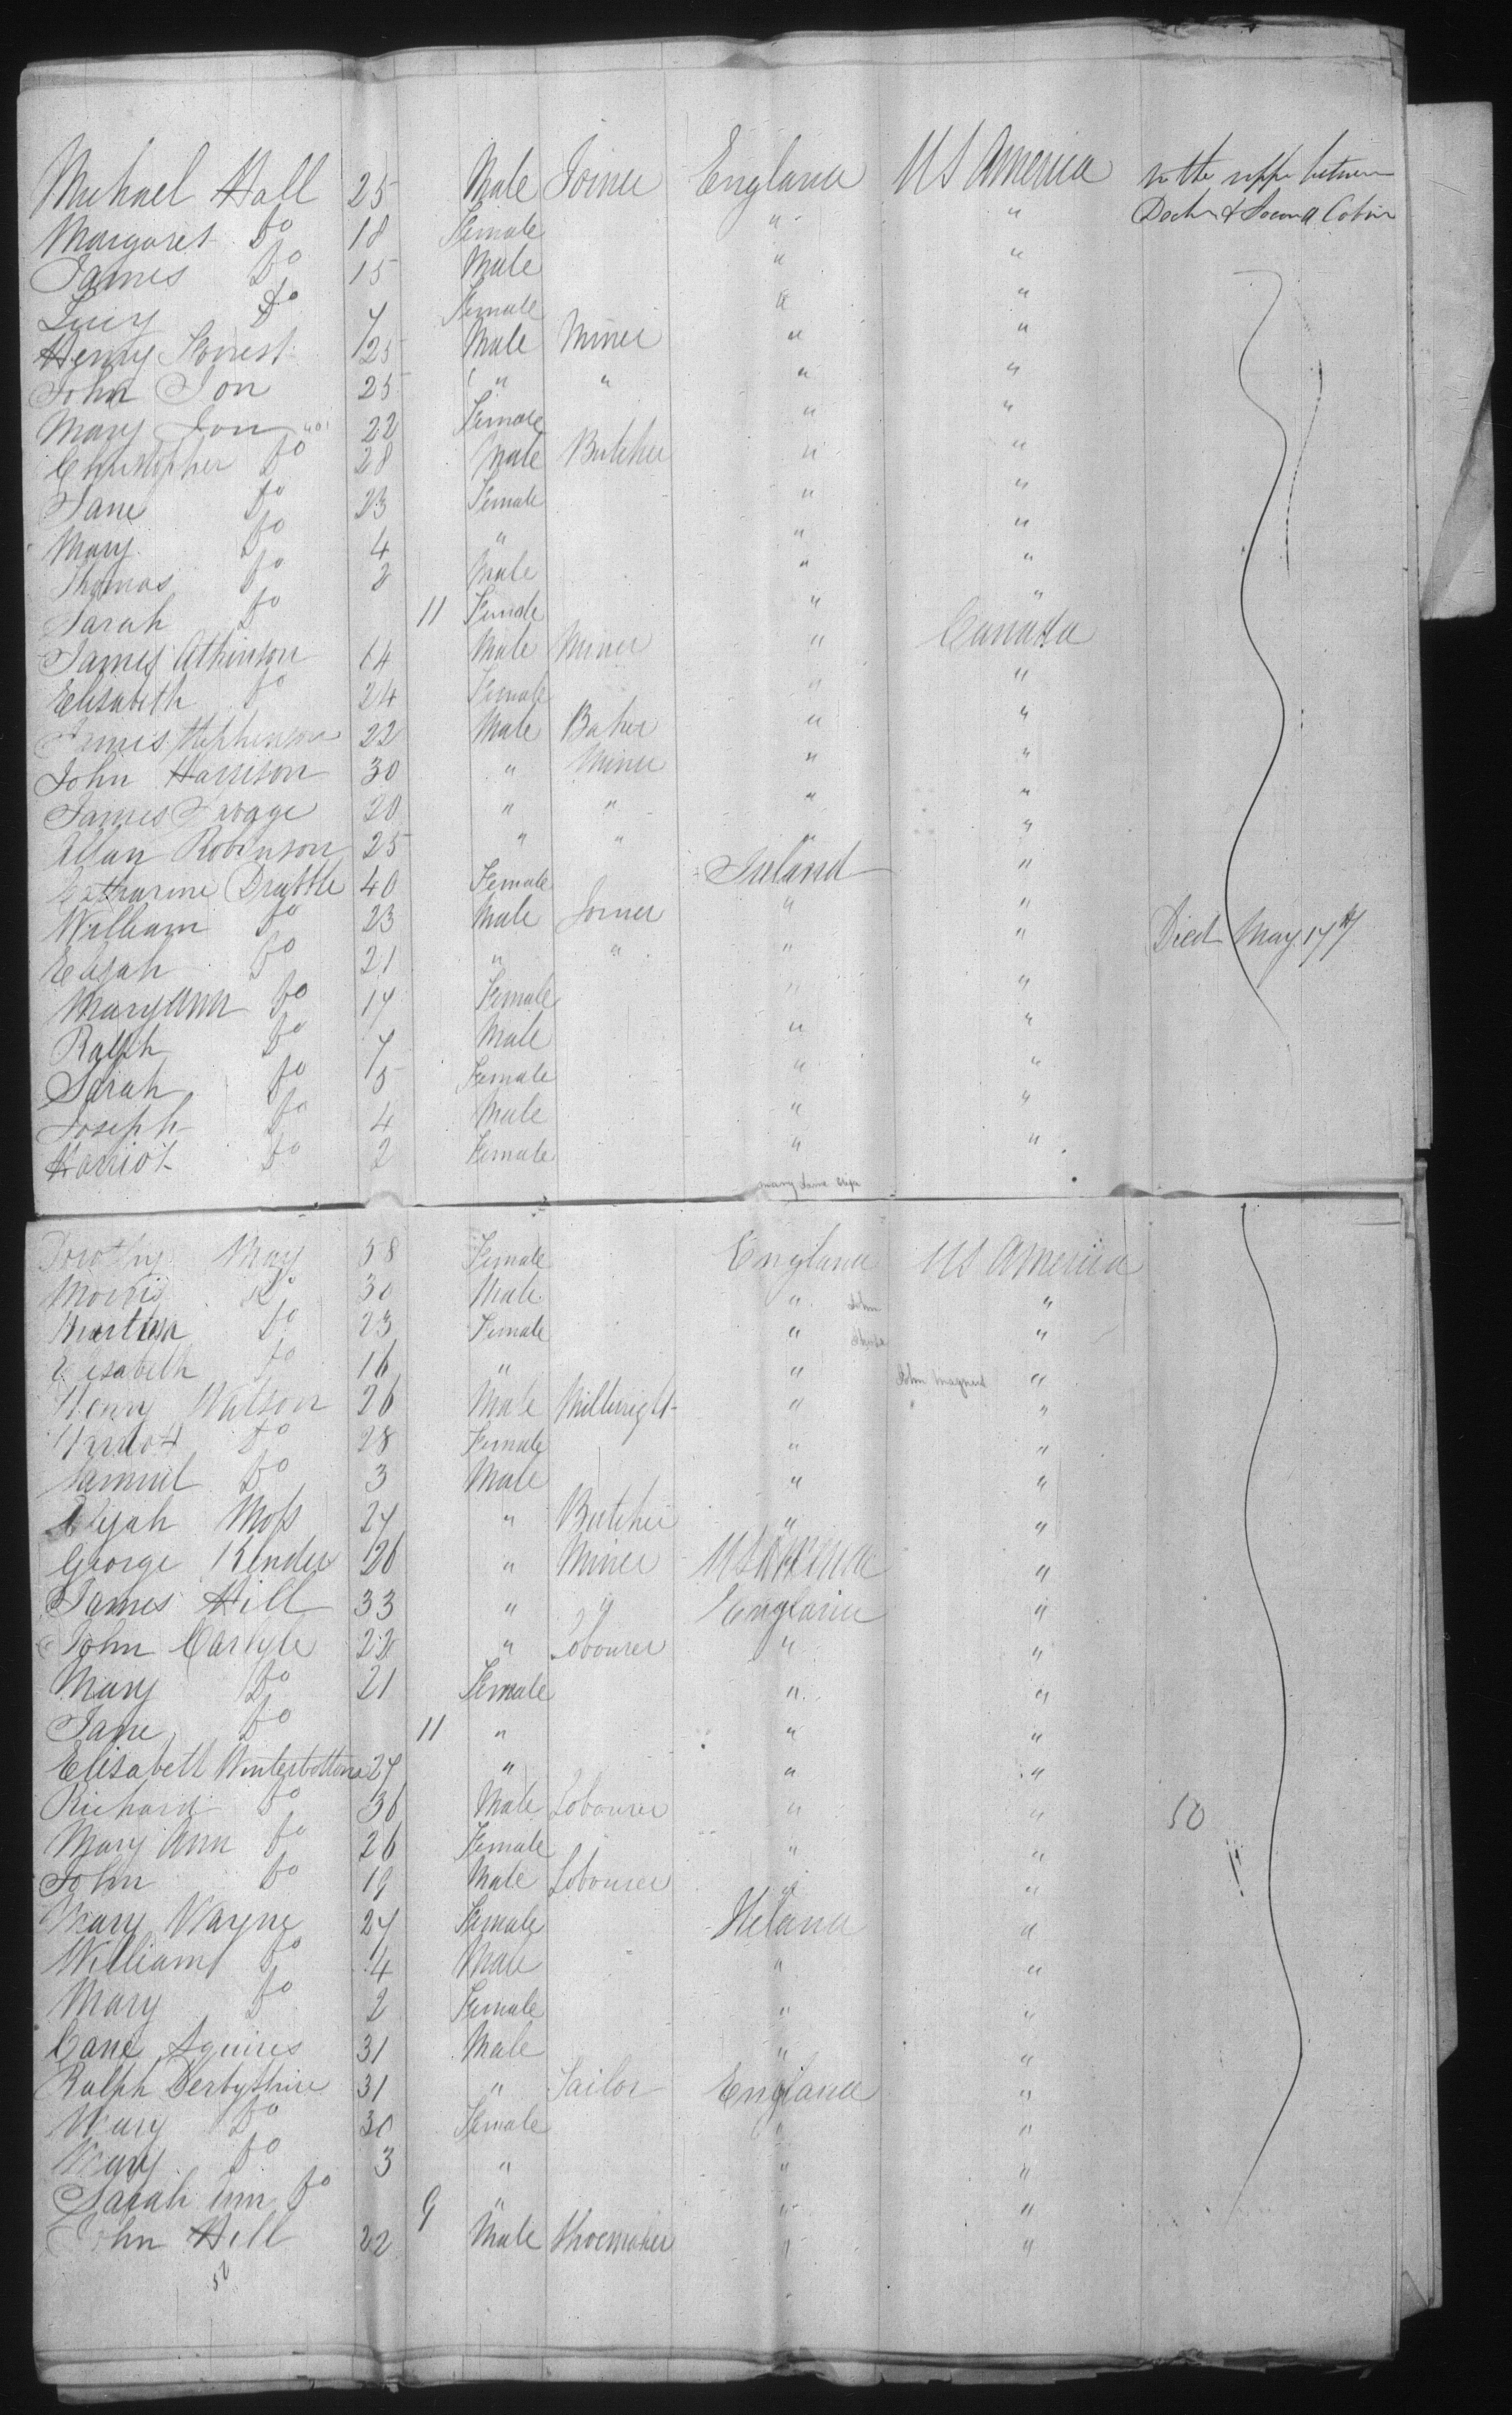 Michael Hall 25 Male Joiner England US America In the upper between
Margaret Do 18 Female " " Decks & Second Cabin
James Do 15 Male " "
Lucy Do 7 Female " "
Henry Forrest 25 Male Miner " "
John Ion 25 " " " "
Mary Ion 22 Female " "
Christopher Do 28 Male Butcher " "
Jane Do 23 Female " "
Mary Do 4 " " "
Thomas Do 2 Male " "
Sarah Do 11 Female " "
James Atkinson 14 Male Miner " Canada
Elisabeth Do 24 Female " "
James Stephenson 22 Male Baker " "
John Harrison 30 " Miner " "
James Savage 20 " " " "
Allan Robinson 25 " " " "
Catharine Drabble 40 Female Ireland "
William Do 23 Male Joiner " " Died May 17th
Elijah Do 21 " " " "
Mary Ann Do 17 Female " "
Ralph Do 7 Male " "
Sarah Do 5 Female " "
Joseph Do 4 Male " "
Harriot Do 2 Female " "
Mary Jane
Dorothy May 58 Female England US America
Morris Do 30 Male " "
John
Do 23 Female " "
Elisabeth Do 16 " " "
John
Henry Watson 26 Male Millwright " "
Harriot Do 28 Female " "
Samuel Do 3 Male " "
Elijah Moss 27 " Butcher " "
George Kender 26 " Miner US America "
James Hill 33 " " England "
John Carlyle 22 " Labourer " "
Mary Do 21 Female " "
Jane Do 11 " " "
Elisabett Winterbottom 27 " " "
Richard Do 36 Male Labourer " " 50
Mary Ann Do 26 Female " "
John Do 19 Male Labourer " "
Mary Wayne 27 Female Ireland "
William Do 4 Male " "
Mary Do 2 Female " "
Cane Squires 31 Male " "
Ralph Derbyshire 31 " Tailor England "
Mary Do 30 Female " "
Mary Do 3 " " "
Sarah Ann Do 9 " " "
John Hill 22 Male Shoemaker " "
52